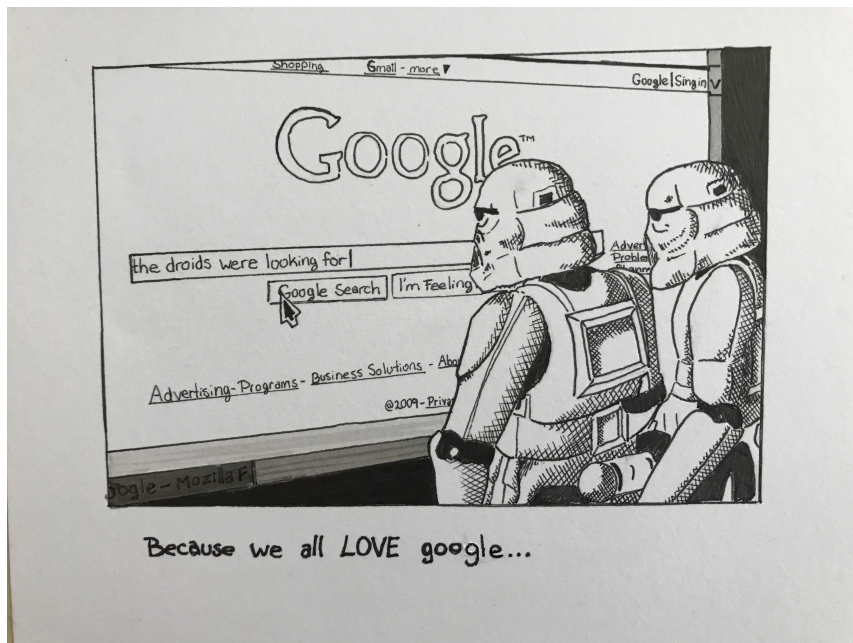 Shopping Gmail - more ▼
Google | Sing in
Google™
the droids were looking for
Google Search I'm Feeling
Advertising-Programs - Business Solutions - Abo
@2009 - Priva
oogle - Mozilla F
Because we all LOVE google...